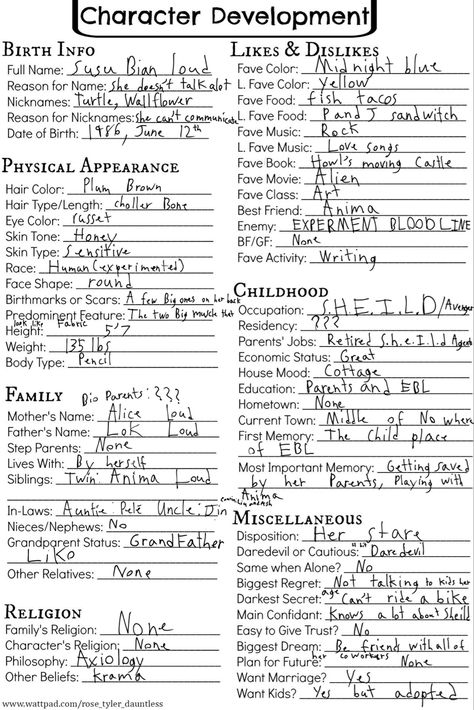 Character Development
BIRTH INFO
Full Name: Susu Bian loud
Reason for Name: She doesn't talk alot
Nicknames: Turtle, Wallflower
Reason for Nicknames: She can't communicate
Date of Birth: 1986, June 12th
PHYSICAL APPEARANCE
Hair Color: Plum Brown
Hair Type/Length: choller Bone
Eye Color: russet
Skin Tone: Honey
Skin Type: Sensitive
Race: Human (experimented)
Face Shape: round
Birthmarks or Scars: A few Big ones on her back
Predominent Feature: The two Big muscle that
look like Fabric
Height: 5'7
Weight: 135 lbs
Body Type: Pencil
FAMILY Bio Parents: ???
Mother's Name: Alice loud
Father's Name: LoK Loud
Step Parents: None
Lives With: By herself
Siblings: Twin: Anima Loud
In-Laws: Auntie: Pele Uncle: Jin
Nieces/Nephews: No
Grandparent Status: GrandFather
Liko
Other Relatives: None
RELIGION
Family's Religion: None
Character's Religion: None
Philosophy: Axiology
Other Beliefs: Krama
www.wattpad.com/rose_tyler_dauntless
LIKES & DISLIKES
Fave Color: Midnight blue
L. Fave Color: Yellow
Fave Food: fish tacos
L. Fave Food: P and J sandwitch
Fave Music: Rock
L. Fave Music: Love songs
Fave Book: Howl's moving Castle
Fave Movie: Alien
Fave Class: Art
Best Friend: Anima
Enemy: EXPERMENT BLOODLINE
BF/GF: None
Fave Activity: Writing
CHILDHOOD
Occupation: S.H.E.I.L.D/Avenger
Residency: ???
Parents' Jobs: Retired S.h.e.I.l.d Agents
Economic Status: Great
House Mood: Cottage
Education: Parents and EBL
Hometown: None
Current Town: Middle of No where
First Memory: The Child place
of EBL
Most Important Memory: Getting saved
by her Parents, Playing with
Anima
MISCELLANEOUS
Disposition: Her stare
Daredevil or Cautious: Daredevil
Same when Alone? No
Biggest Regret: Not talking to kids her
age
Darkest Secret: Can't ride a bike
Main Confidant: Knows a lot about Sheild
Easy to Give Trust? No
Biggest Dream: Be friend with all of
her coworkers
Plan for Future: None
Want Marriage? Yes
Want Kids? Yes but adopted